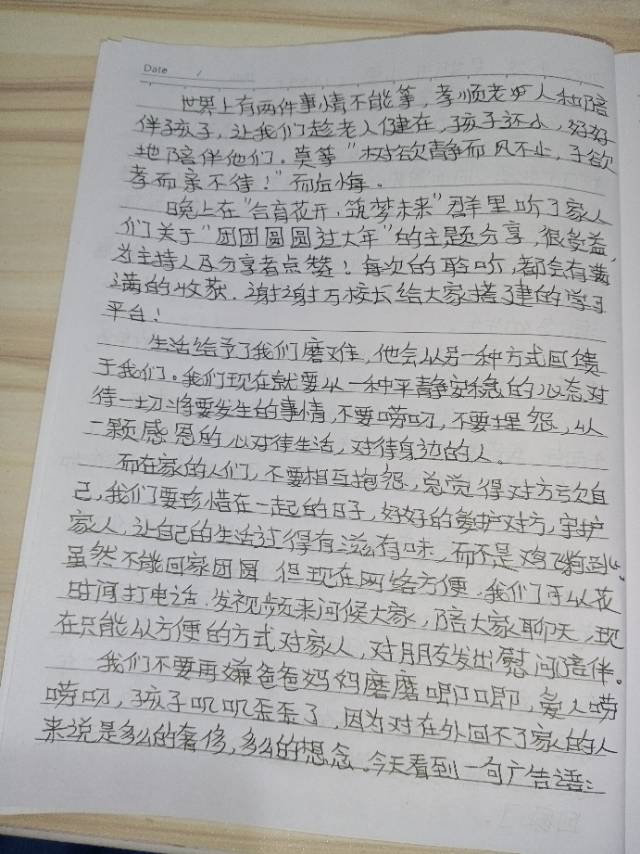 Date
世界上有两件事情不能等，孝顺老人和陪
伴孩子，让我们趁老人健在，孩子还小，好好
地陪伴他们。莫等“树欲静而风不止，子欲
孝而亲不待！”而后悔。
晚上在“合育花开，筑梦未来”群里听了家人
们关于“团团圆圆过大年”的主题分享，很受益，
为主持人及分享者点赞！每次的聆听，都会有满
满的收获。谢谢万校长给大家搭建的学习
平台！
生活给予了我们磨难，他会以另一种方式回馈
于我们。我们现在就要以一种平静安稳的心态对
待一切将要发生的事情，不要唠叨，不要埋怨，以
一颗感恩的心对待生活，对待身边的人。
而在家的人们，不要相互抱怨，总觉得对方亏欠自
己，我们要珍惜在一起的日子，好好的爱护对方，守护
家人，让自己的生活过得有滋有味，而不是鸡飞狗跳。
虽然不能回家团圆，但现在网络方便，我们可以花
时间打电话，发视频来问候大家，陪大家聊天，现
在只能以方便的方式对家人，对朋友发出慰问陪伴。
我们不要再嫌爸爸妈妈磨磨唧唧，爱人唠
唠叨叨，孩子叽叽歪歪了，因为对在外回不了家的人
来说是多么的奢侈，多么的想念。今天看到一句广告语：